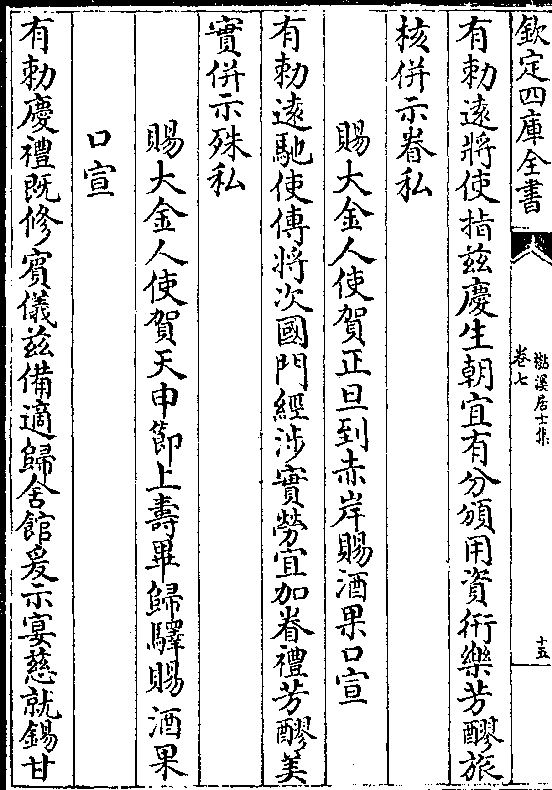 欽定四庫全書
檆溪居士集
卷七
十五
有勅遠將使指兹慶生朝宜有分頒用資衎樂芳醪旅
核併示眷私
賜大金人使賀正旦到赤岸賜酒果口宣
有勅遠馳使傳將次國門經涉實勞宜加眷禮芳醪美
實併示殊私
賜大金人使賀天申節上壽畢歸驛賜酒果
口宣
有勅慶禮既修賓儀兹備適歸舍館爰示宴慈就錫甘